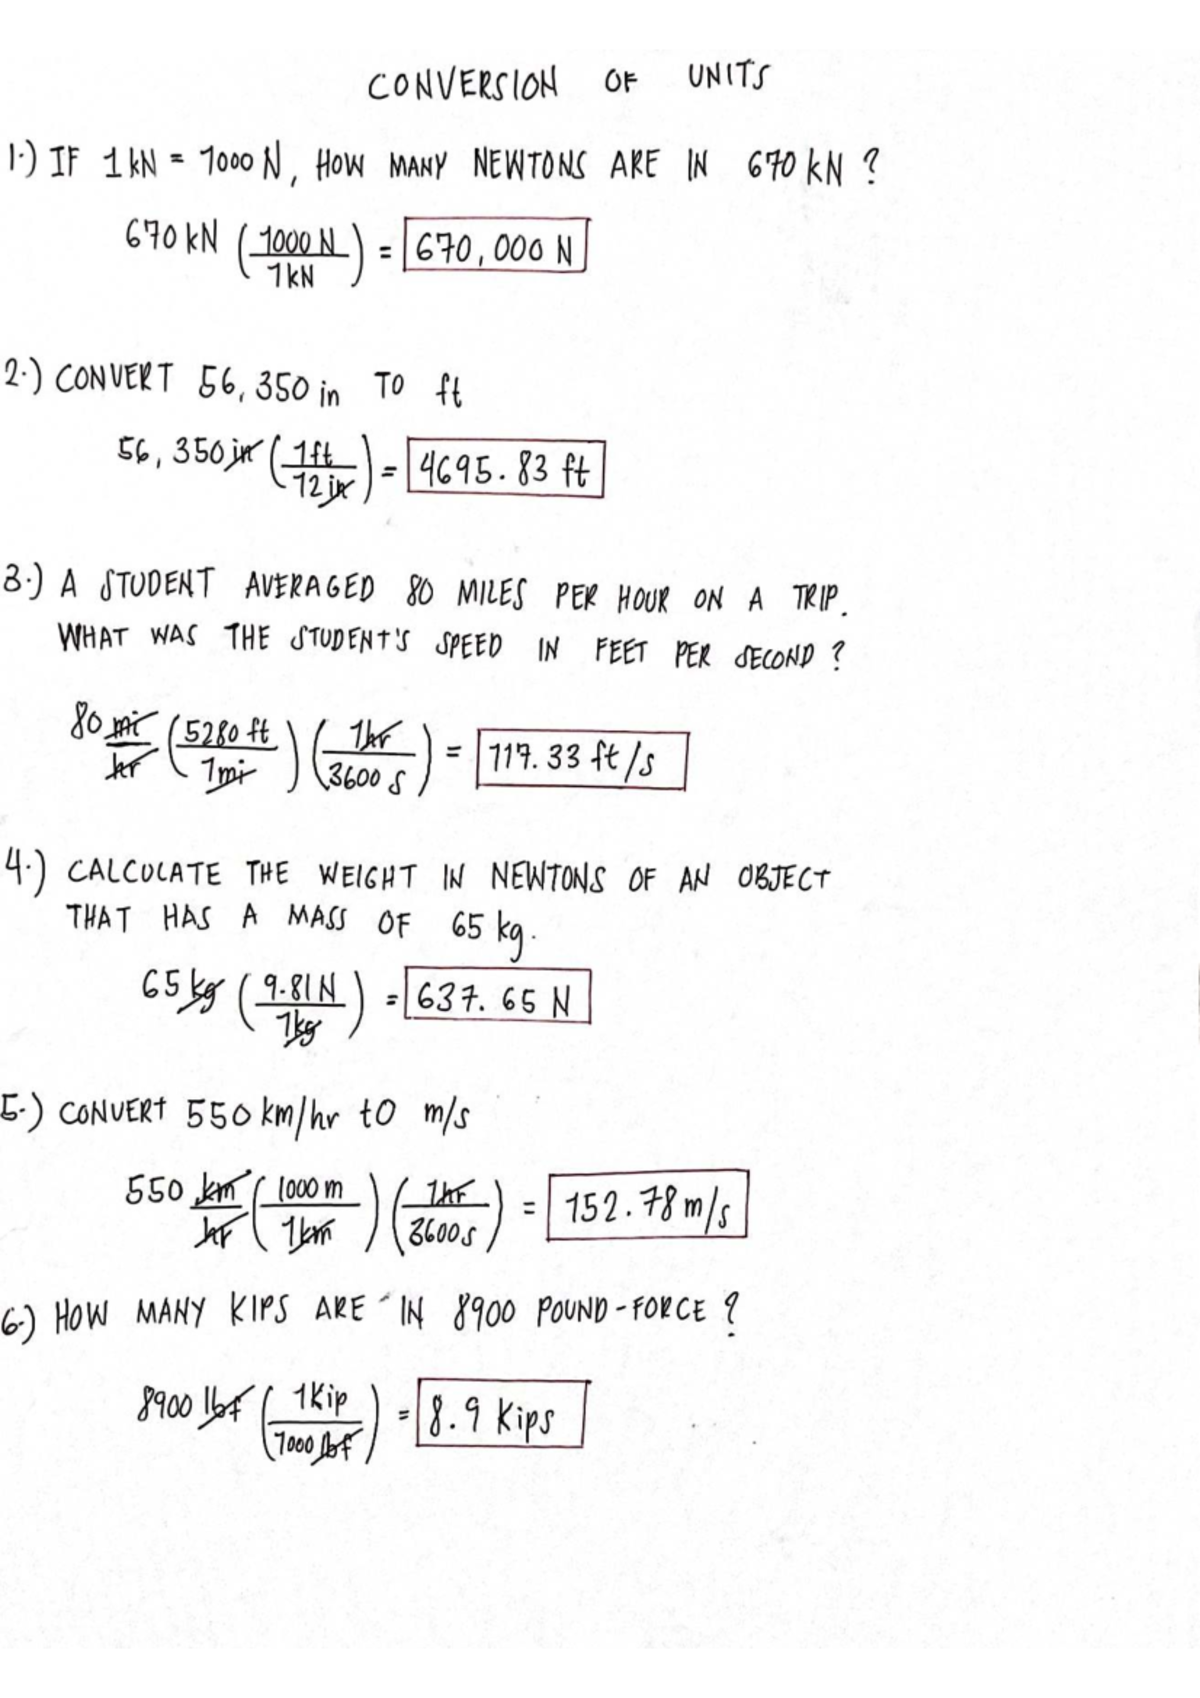 CONVERSION OF UNITS
1.) IF 1 kN = 1000 N, HOW MANY NEWTONS ARE IN 670 kN ?
670 kN ( 1000 N / 1 kN ) = 670,000 N
2.) CONVERT 56,350 in TO ft
56,350 in ( 1 ft / 12 in ) = 4695.83 ft
3.) A STUDENT AVERAGED 80 MILES PER HOUR ON A TRIP.
WHAT WAS THE STUDENT'S SPEED IN FEET PER SECOND ?
80 mi/hr ( 5280 ft / 1 mi ) ( 1 hr / 3600 s ) = 117.33 ft/s
4.) CALCULATE THE WEIGHT IN NEWTONS OF AN OBJECT
THAT HAS A MASS OF 65 kg.
65 kg ( 9.81 N / 1 kg ) = 637.65 N
5.) CONVERT 550 km/hr tO m/s
550 km/hr ( 1000 m / 1 km ) ( 1 hr / 3600 s ) = 152.78 m/s
6.) HOW MANY KIPS ARE IN 8900 POUND-FORCE ?
8900 lbf ( 1 Kip / 1000 lbf ) = 8.9 Kips